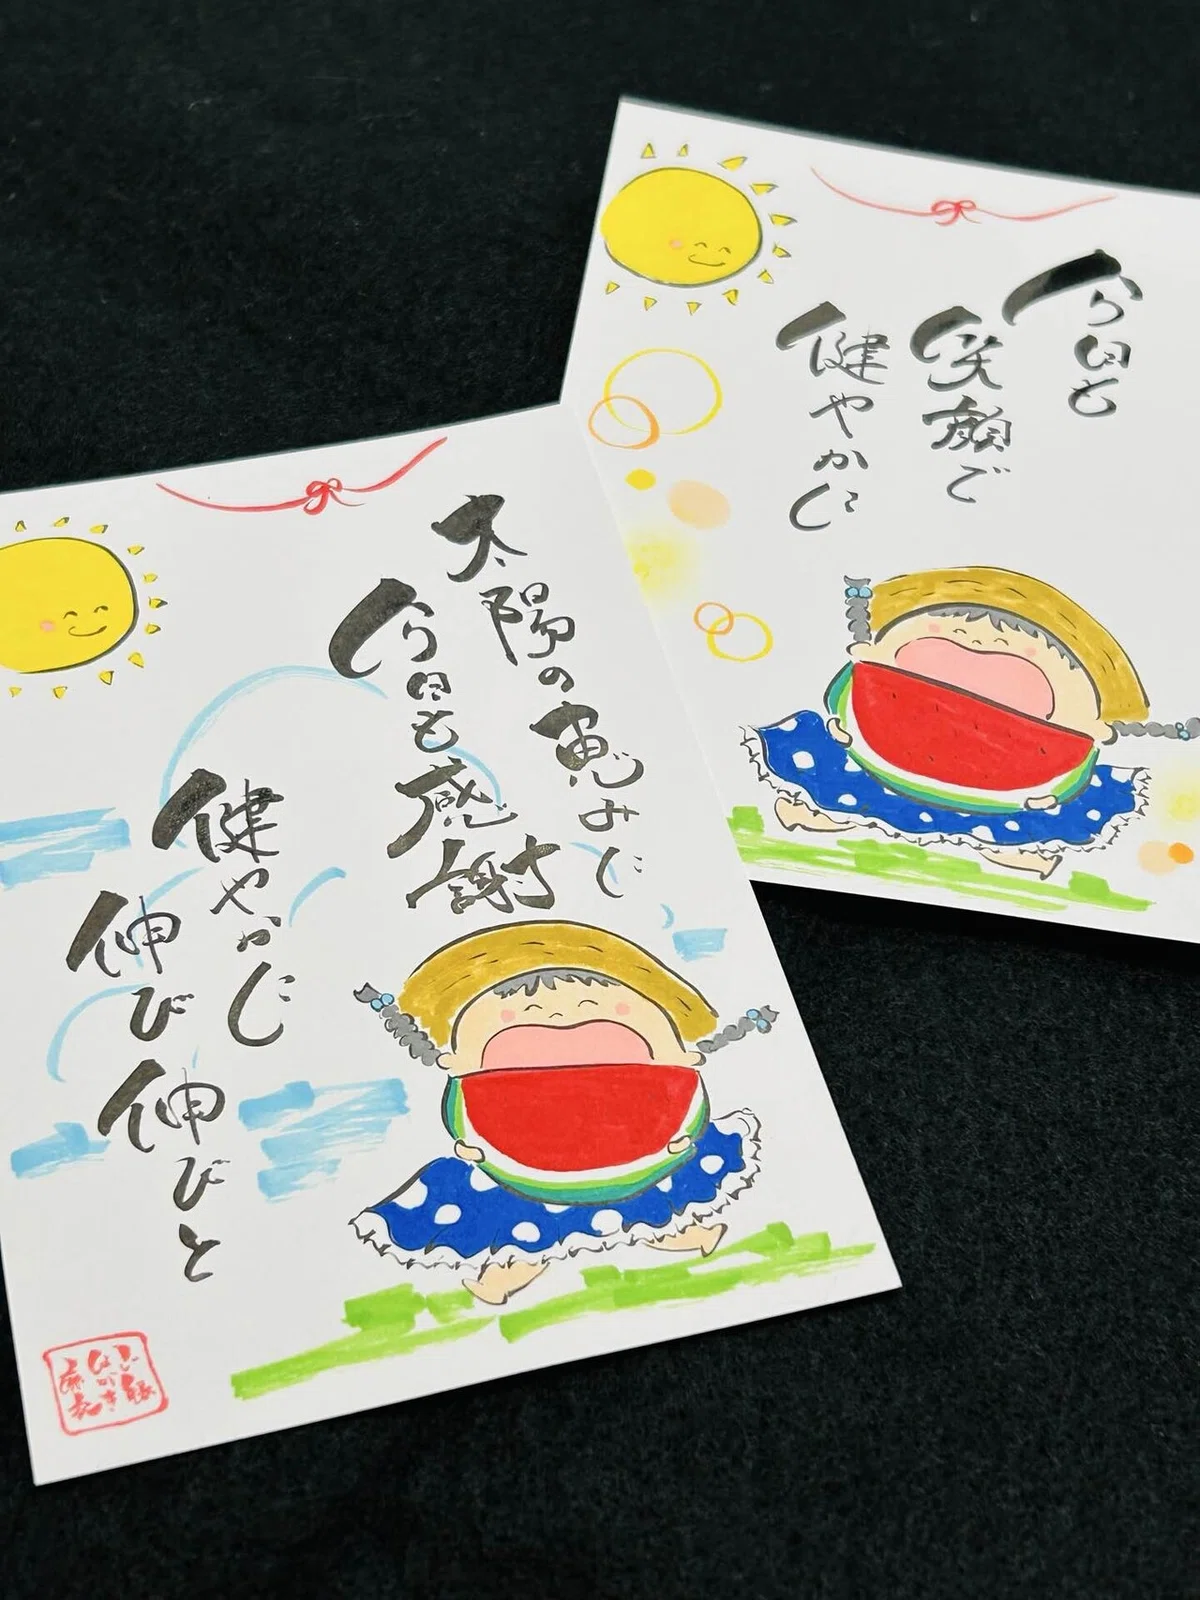 太陽の恵みに
今日も感謝
健やかに
伸び伸びと
今日も
笑顔で
健やかに